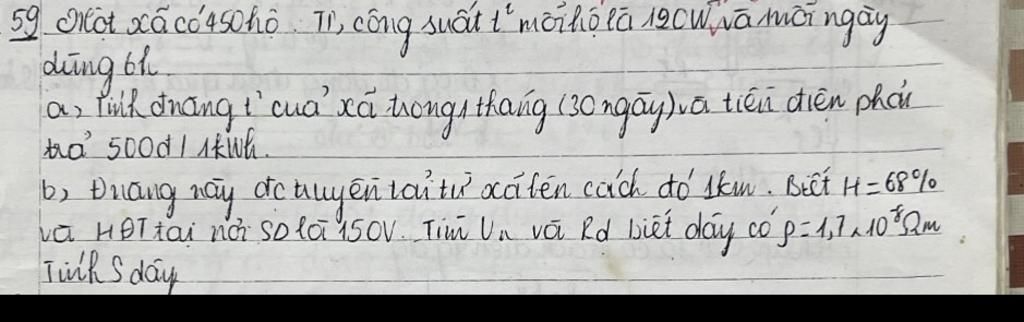 59 Một xã có 450 hộ. TB, công suất t² mỗi hộ là 120W và mỗi ngày
dùng 6h.
a, Tính đnăng t² của xã trong 1 tháng (30 ngày) và tiền điện phải
trả 500đ/1kWh.
b, Đnăng này đc truyền tải từ xã đến cách đó 1km. Biết H = 68%
và HĐT tại nơi SD là 150V. Tìm Un và Rd biết dây có ρ = 1,7.10⁻⁸Ωm
Tính S dây